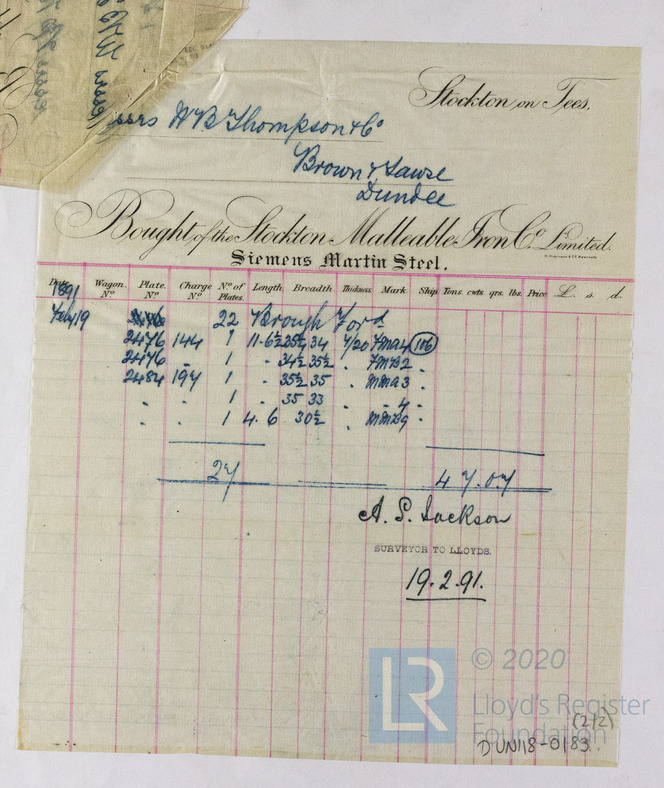 Stockton on Tees,
W B Thompson & Co
Brown & Lawse
Dundee
Bought of the Stockton Malleable Iron Co. Limited.
Siemens Martin Steel.
Date Wagon No Plate. No Charge No No of Plates. Length. Breadth. Thickness. Mark. Ship. Tons. cwts. qrs. lbs. Price £. s. d.
1891
Feby 19 22 Brought Ford
2476 144 1 11·6½ 35½ 34 7/20 106
2476 - 1 " 34½ 35½ "
2484 197 1 " 35½ 35 "
" " 1 " 35 33 " " 4 "
" " 1 4·6 30½ "
27 4 7.0.7
A. P. Jackson
SURVEYOR TO LLOYDS.
19.2.91.
LR
© 2020
Lloyd's Register
Foundation
(2/2)
DUN118-0183.